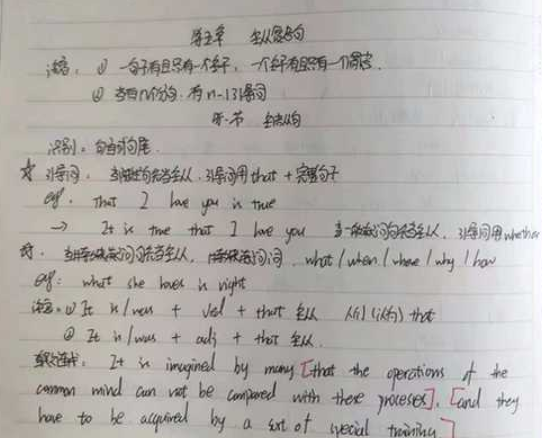 第五章 主从复合句
注意：① 一句子有且只有一个主干，一个主干有且只有一个谓语.
② 当有n个分句，有n-1引导词
第一节 主语从句
识别：句首或句尾.
☆ 引导词：当陈述句充当主从，引导词用 that + 完整句子
eg. That I love you is true
→ It is true that I love you 当一般疑问句充当主从，引导词用 whether
当特殊疑问句充当主从，特殊疑问词. what / when / where / why / how
eg: what she loves is right
注意：① It is/was + Ved + that 主从 人们(认为) that
② It is/was + adj + that 主从.
It is imagined by many [that the operations of the
common mind can not be compared with these processes], [and they
have to be acquired by a sort of special training]